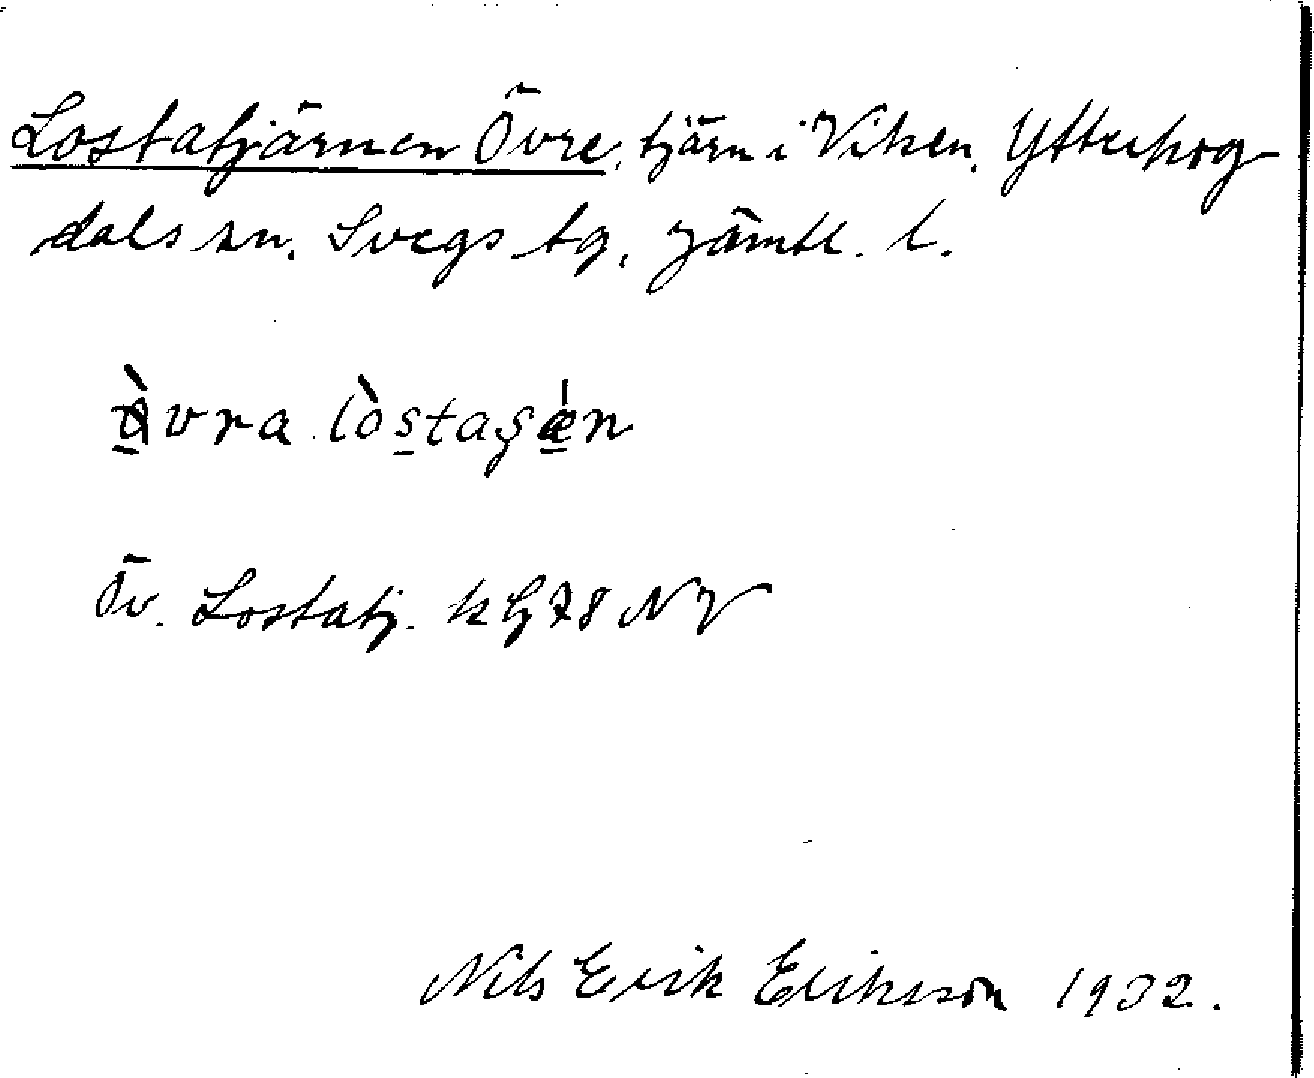 Lostatjärnen Övre, tjärn i Viken, Ytterhog-
dals sn. Svegs tg, Jämtl. l.
vra lòstaʂǽn
Öv. Lostatj. k G 78 NV
Nils Erik Eriksson 1932.